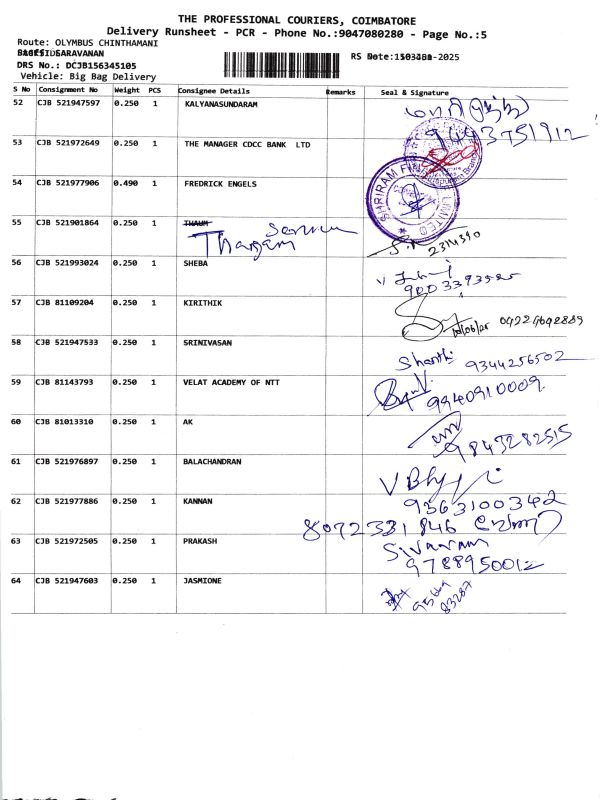 THE PROFESSIONAL COURIERS, COIMBATORE
Delivery Runsheet - PCR - Phone No.:9047080280 - Page No.:5
Route: OLYMBUS CHINTHAMANI
SARAVANAN
RS No
Date: -2025
DRS No.: DCJB156345105
Vehicle: Big Bag Delivery
S No Consignment No Weight PCS Consignee Details Remarks Seal & Signature
52 CJB 521947597 0.250 1 KALYANASUNDARAM
9443951912
53 CJB 521972649 0.250 1 THE MANAGER CDCC BANK LTD
54 CJB 521977906 0.490 1 FREDRICK ENGELS
SHRIRAM LIMITED
55 CJB 521901864 0.250 1 THAUM
Thangam
2314390
56 CJB 521993024 0.250 1 SHEBA
57 CJB 81109204 0.250 1 KIRITHIK
58 CJB 521947533 0.250 1 SRINIVASAN
Shanthi 9344256502
59 CJB 81143793 0.250 1 VELAT ACADEMY OF NTT
9940910009.
60 CJB 81013310 0.250 1 AK
9843282515
61 CJB 521976897 0.250 1 BALACHANDRAN
62 CJB 521977886 0.250 1 KANNAN
9363100342
8072331846
63 CJB 521972505 0.250 1 PRAKASH
Sivaram
9788950012
64 CJB 521947603 0.250 1 JASMIONE
83287